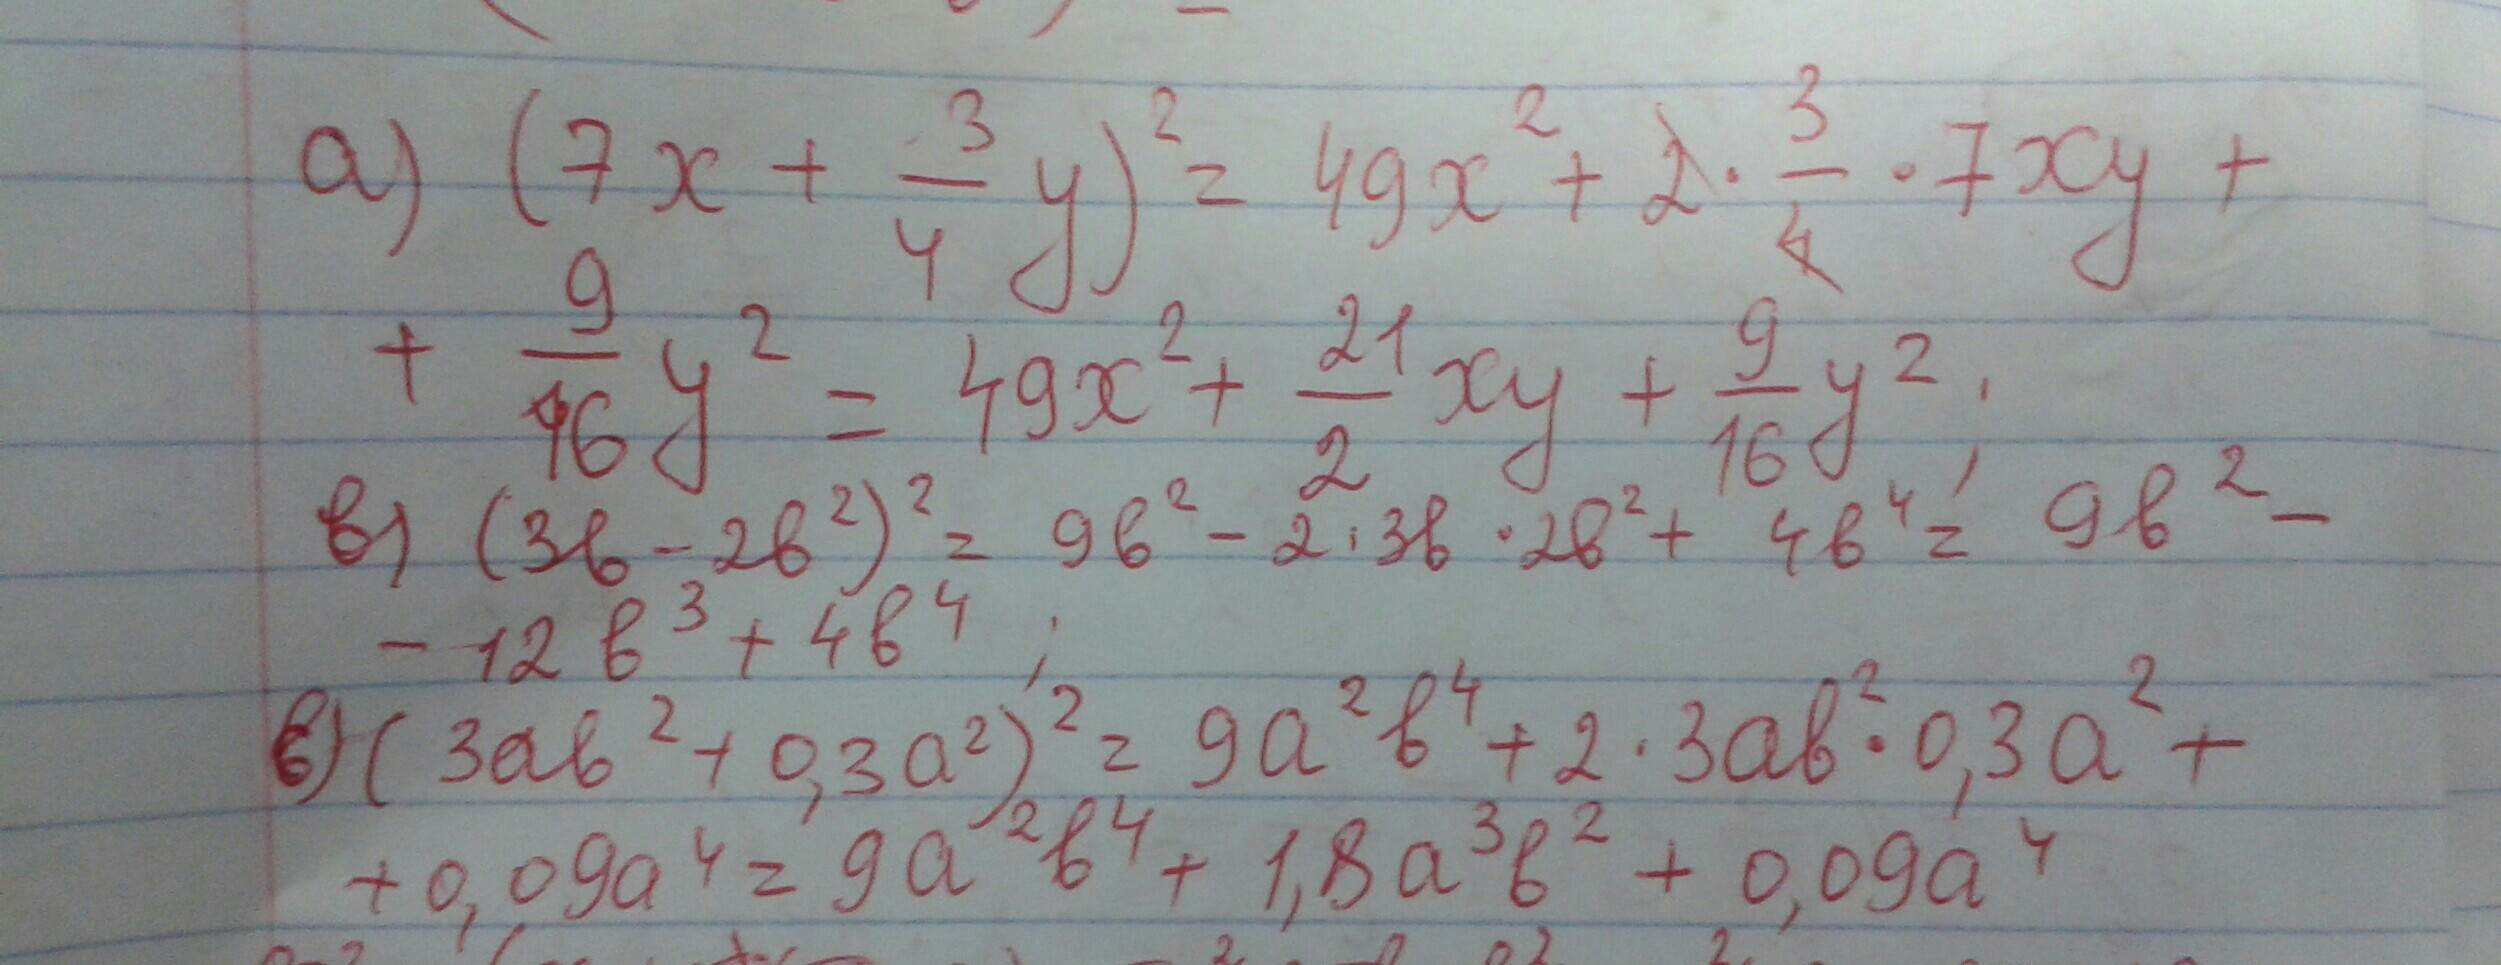 а) (7x + 3/4 y)² = 49x² + 2 · 3/4 · 7xy +
+ 9/16 y² = 49x² + 21/2 xy + 9/16 y²;
в) (3в - 2в²)² = 9в² - 2·3в · 2в² + 4в⁴ = 9в² -
- 12в³ + 4в⁴;
в) (3aв² + 0,3a²)² = 9a²в⁴ + 2 · 3aв² · 0,3a² +
+ 0,09a⁴ = 9a²в⁴ + 1,8a³в² + 0,09a⁴